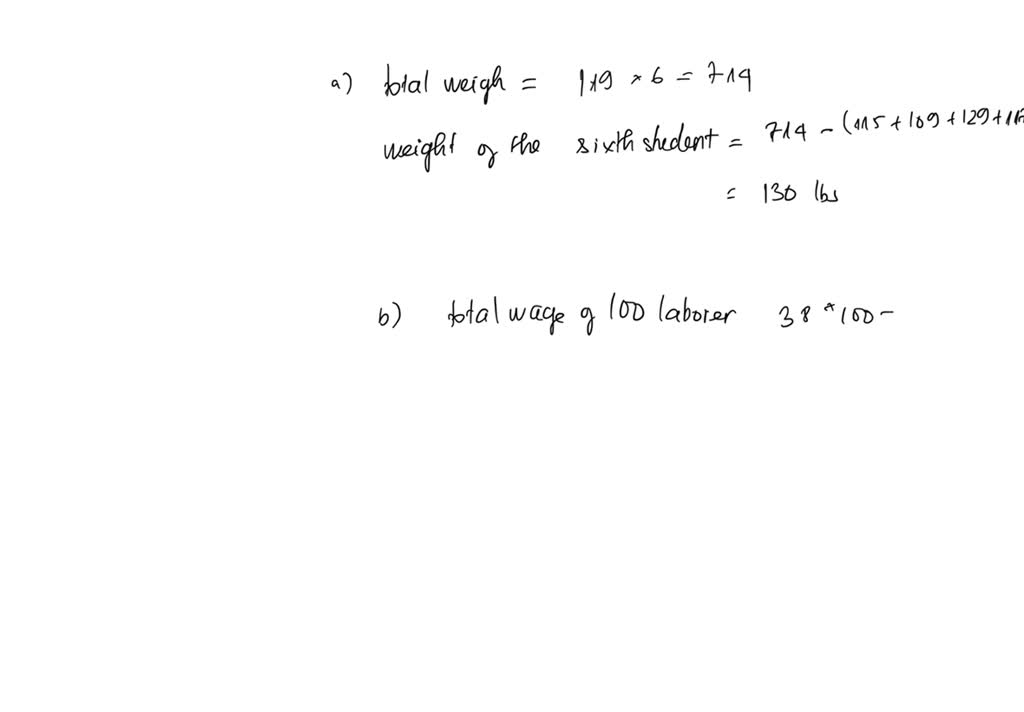 a) total weigh = 119 * 6 = 714
weight of the sixth student = 714 - (115 + 109 + 129 + 11
= 130 lbs
b) total wage of 100 laborer 38 * 100 -